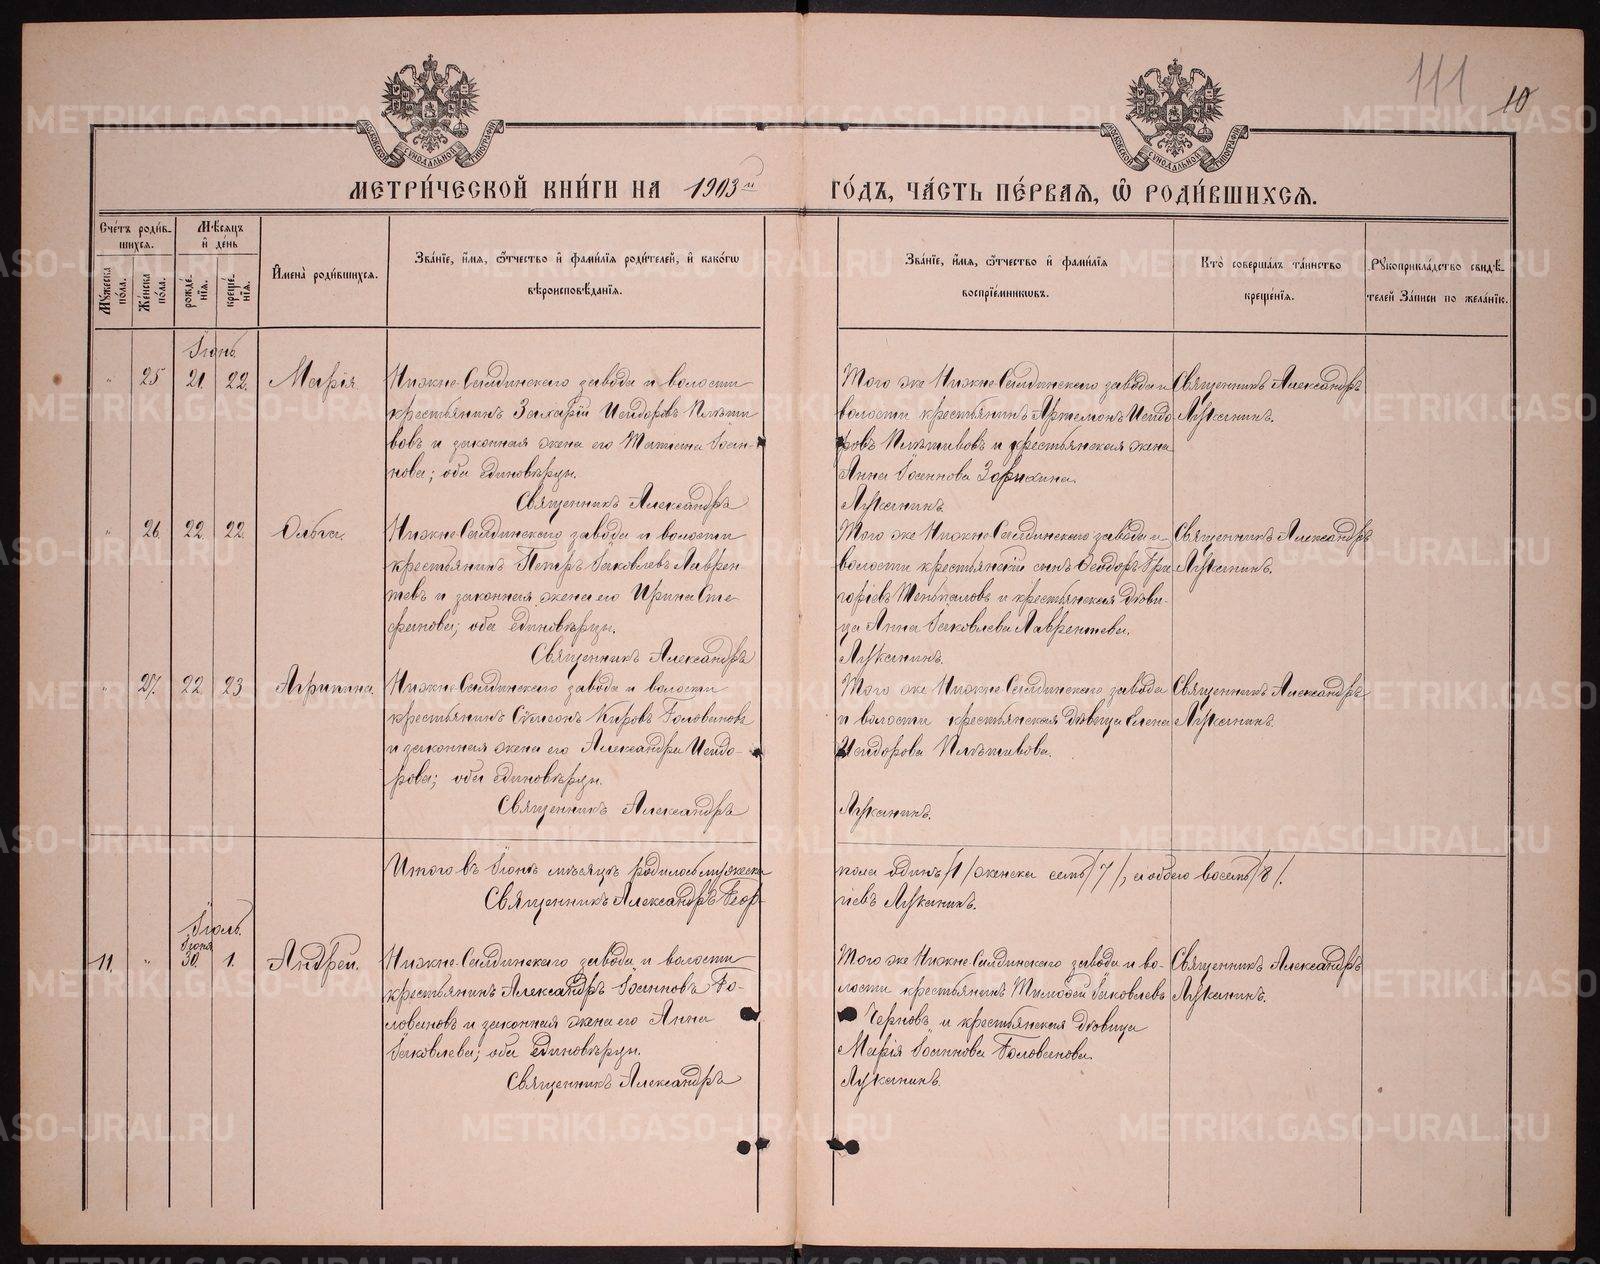 111
10
МОСКОВСКОЙ СѴНОДАЛЬНОЙ ТИПОГРАФІИ
МОСКОВСКОЙ СѴНОДАЛЬНОЙ ТИПОГРАФІИ
МЕТРИ́ЧЕСКОЙ КНИ́ГИ НА 1903й ГО́ДЪ, ЧА́СТЬ ПЕ́РВАЯ, Ѡ҆ РОДИ́ВШИХСЯ.
Сче́тъ роди́в-
шихся.
Мѣ́сяцъ
и҆ де́нь
Мꙋ́жеска по́ла.
Же́нска по́ла.
рожде́нїя.
креще́нїя.
И҆мена̀ роди́вшихся.
Зва́нїе, и҆́мя, ѻ҆́тчество и҆ фамилїя роди́телей, и҆ како́гѡ
вѣроисповѣ́данїя.
Зва́нїе, и҆́мя, ѻ҆́тчество и҆ фамилїя
воспрїе́мникѡвъ.
Кто̀ соверша́лъ та́инство
креще́нїя.
Рꙋкоприкла́дство свидѣ́-
телей За́писи по жела́нїю.
Іюнь
" 25 21. 22. Марія.
Нижне-Салдинскаго завода и волости
крестьянинъ Захарій Исидоровъ Плѣши
вовъ и законная жена его Татіана Іоан-
нова; оба единовѣрцы.
Священникъ Александръ
Того же Нижне-Салдинскаго завода и
волости крестьянинъ Артемонъ Исидо
ровъ Плѣшивовъ и крестьянская жена
Анна Іоаннова Зорихина.
Лукинъ.
Священникъ Александръ
" 26. 22. 22. Ольга.
Нижне-Салдинскаго завода и волости
крестьянинъ Петръ Іаковлевъ Лаврен-
тевъ и законная жена его Ирина Сте
фанова; оба единовѣрцы.
Священникъ Александръ
Того же Нижне-Салдинскаго завода и
волости крестьянскій сынъ Ѳеодоръ Гри
горіевъ и крестьянская дѣви-
ца Анна Іаковлева Лаврентева.
Священникъ Александръ
" 27. 22 23 Агрипина.
Нижне-Салдинскаго завода и волости
крестьянинъ Сѵмеонъ Кировъ Головановъ
и законная жена его Александра Исидо-
рова; оба единовѣрцы.
Священникъ Александръ
Того же Нижне-Салдинскаго завода
и волости крестьянская дѣвица Елена
Исидорова Плѣшивова.
Священникъ Александръ
Итого въ Іюнѣ мѣсяцѣ родилось мужеска
пола одинъ /1/ женска семь /7/, а обоего восемь /8/.
Священникъ Александръ Геор-
гіевъ
Іюль.
Іюня
11. " 30. 1. Андрей.
Нижне-Салдинскаго завода и волости
крестьянинъ Александръ Іоанновъ Го-
ловановъ и законная жена его Анна
Іаковлева; оба единовѣрцы.
Священникъ Александръ
Того же Нижне-Салдинскаго завода и во-
лости крестьянинъ Тимоѳей Іаковлевъ
Черновъ и крестьянская дѣвица
Марія Іоаннова Голованова.
Священникъ Александръ
METRIKI.GASO-URAL.RU